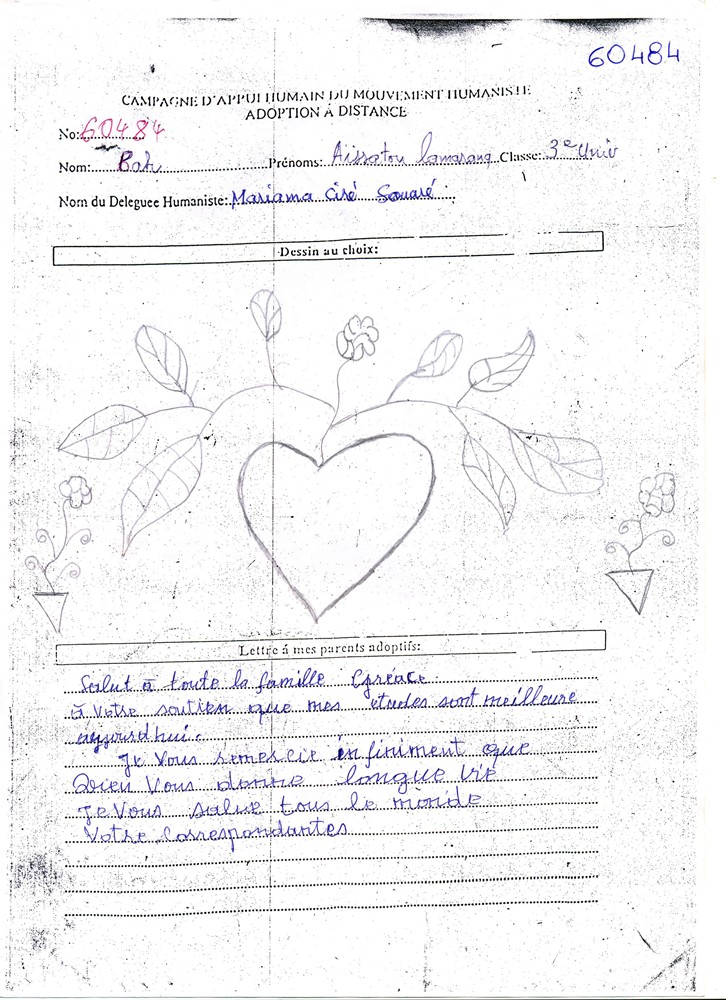 60484
CAMPAGNE D'APPUI HUMAIN DU MOUVEMENT HUMANISTE
ADOPTION À DISTANCE
No: 60484
Nom: Bah Prénoms: Aissatou Lamarana Classe: 3e Univ
Nom du Deleguee Humaniste: Mariama Ciré Souaré
Dessin au choix:
Lettre á mes parents adoptifs:
Salut à toute la famille Gréace
à Votre soutien que mes études sont meilleure
aujourd'hui.
Je Vous remercie infiniment que
Dieu Vous donne longue vie
Je Vous salue tous le monde
Votre Correspondantes